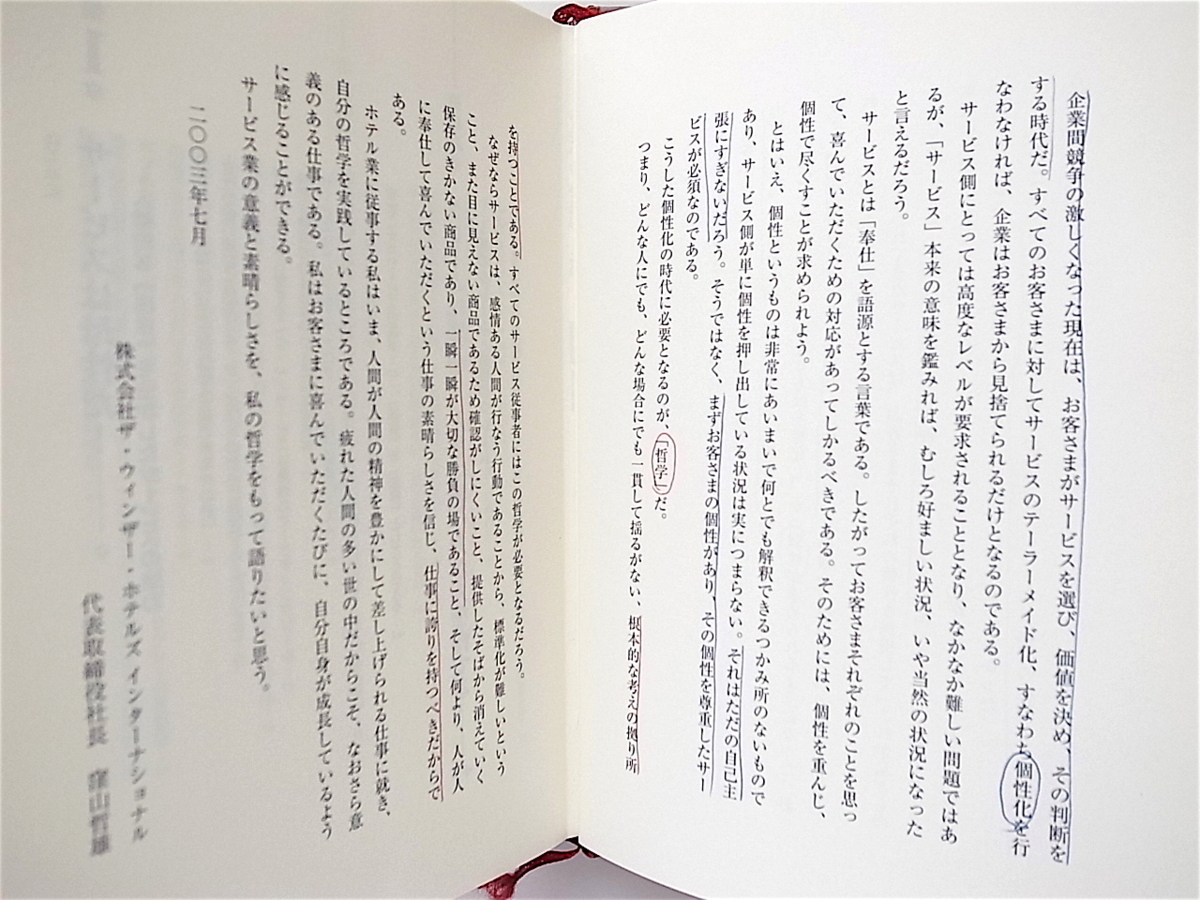 企業間競争の激しくなった現在は、お客さまがサービスを選び、価値を決め、その判断を
する時代だ。すべてのお客さまに対してサービスのテーラーメイド化、すなわち個性化を行
なわなければ、企業はお客さまから見捨てられるだけとなるのである。
サービス側にとっては高度なレベルが要求されることとなり、なかなか難しい問題ではあ
るが、「サービス」本来の意味を鑑みれば、むしろ好ましい状況、いや当然の状況になった
と言えるだろう。
サービスとは「奉仕」を語源とする言葉である。したがってお客さまそれぞれのことを思っ
て、喜んでいただくための対応があってしかるべきである。そのためには、個性を重んじ、
個性で尽くすことが求められよう。
とはいえ、個性というものは非常にあいまいで何とでも解釈できるつかみ所のないもので
あり、サービス側が単に個性を押し出している状況は実につまらない。それはただの自己主
張にすぎないだろう。そうではなく、まずお客さまの個性があり、その個性を尊重したサー
ビスが必須なのである。
こうした個性化の時代に必要となるのが、「哲学」だ。
つまり、どんな人にでも、どんな場合にでも一貫して揺るがない、根本的な考えの拠り所
を持つことである。すべてのサービス従事者にはこの哲学が必要となるだろう。
なぜならサービスは、感情ある人間が行なう行動であることから、標準化が難しいという
こと、また目に見えない商品であるため確認がしにくいこと、提供したそばから消えていく
保存のきかない商品であり、一瞬一瞬が大切な勝負の場であること、そして何より、人が人
に奉仕して喜んでいただくという仕事の素晴らしさを信じ、仕事に誇りを持つべきだからで
ある。
ホテル業に従事する私はいま、人間が人間の精神を豊かにして差し上げられる仕事に就き、
自分の哲学を実践しているところである。疲れた人間の多い世の中だからこそ、なおさら意
義のある仕事である。私はお客さまに喜んでいただくたびに、自分自身が成長しているよう
に感じることができる。
サービス業の意義と素晴らしさを、私の哲学をもって語りたいと思う。
二〇〇三年七月
株式会社ザ・ウィンザー・ホテルズ インターナショナル
代表取締役社長 窪山哲雄